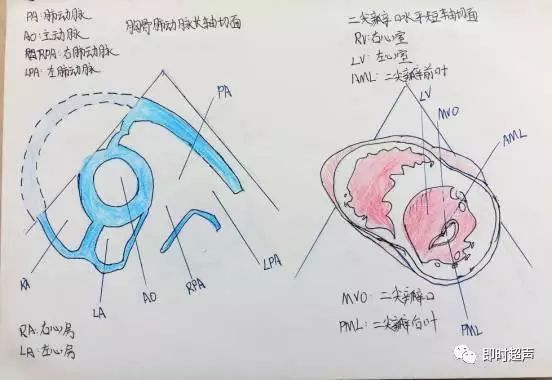 PA: 肺动脉
AO: 主动脉
RPA: 右肺动脉
LPA: 左肺动脉
肺动脉长轴切面
PA
LPA
RPA
AO
LA
RA
RA: 右心房
LA: 左心房
二尖瓣口水平短轴切面
RV: 右心室
LV: 左心室
AML: 二尖瓣前叶
LV
MVO
AML
PML
MVO: 二尖瓣口
PML: 二尖瓣后叶
即时超声